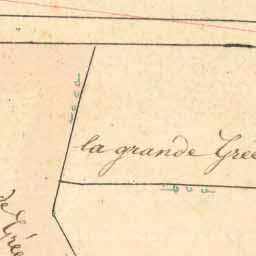 la grande Grée
de Grée